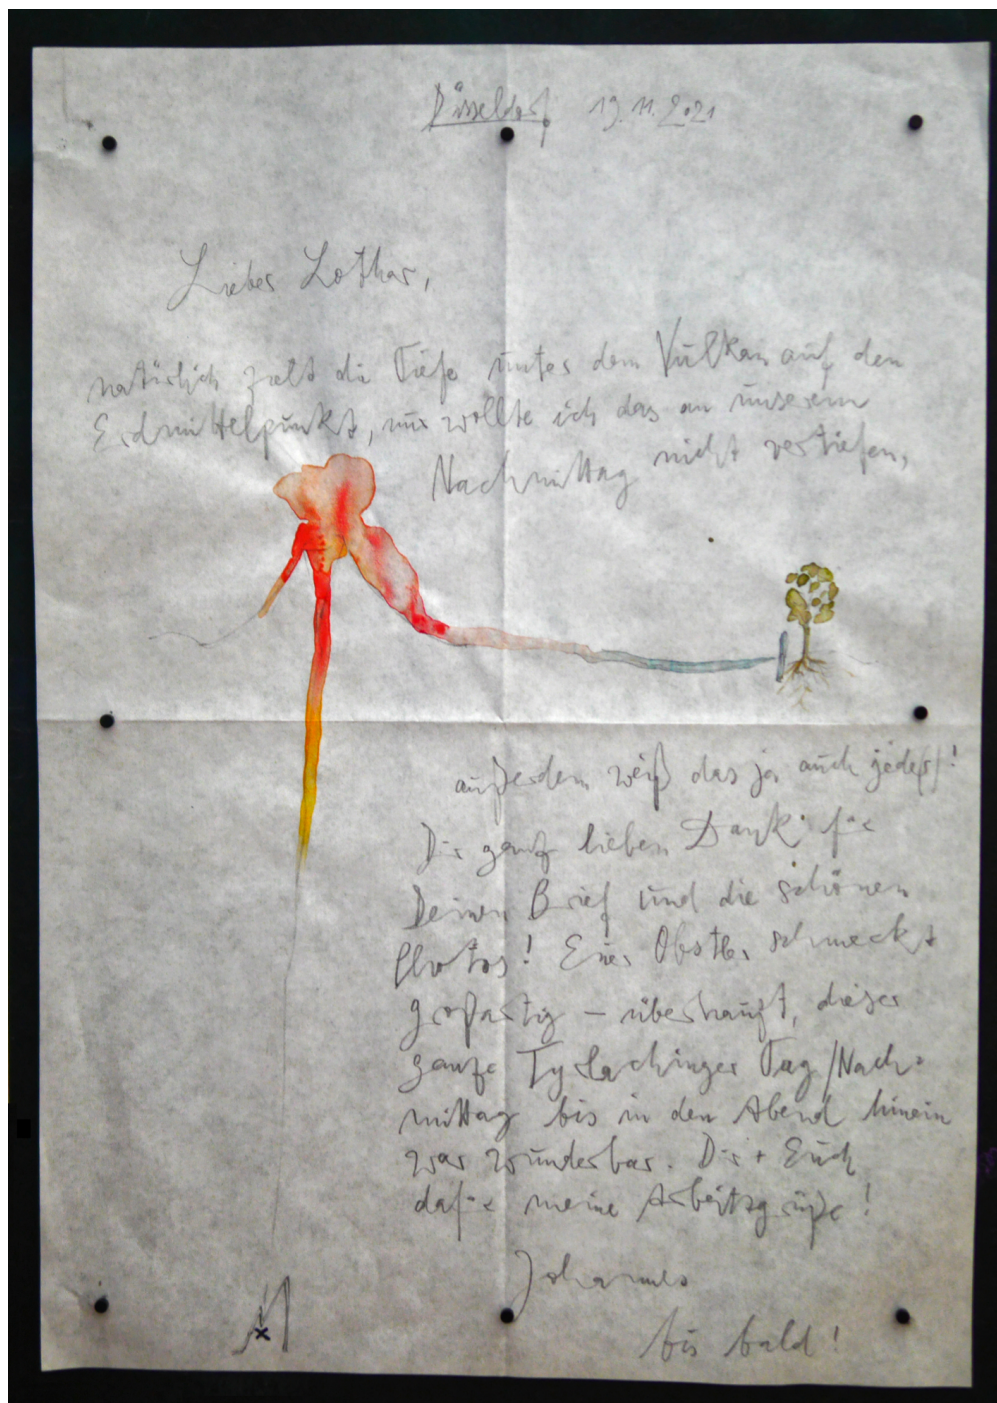 Düsseldorf, 19.11.2021
Lieber Lothar,
natürlich zielt die Tiefe unter dem Vulkan auf den
Erdmittelpunkt, nur wollte ich das an unserem
Nachmittag nicht vertiefen,
außerdem weiß das ja auch jede(r)!
Dir ganz lieben Dank für
Deinen Brief und die schönen
Photos! Euer Obstler schmeckt
großartig – überhaupt, dieser
ganze Tyrlachinger Tag/Nach-
mittag bis in den Abend hinein
war wunderbar. Dir + Euch
dafür meine Arbeitsgrüße!
Johannes
bis bald!